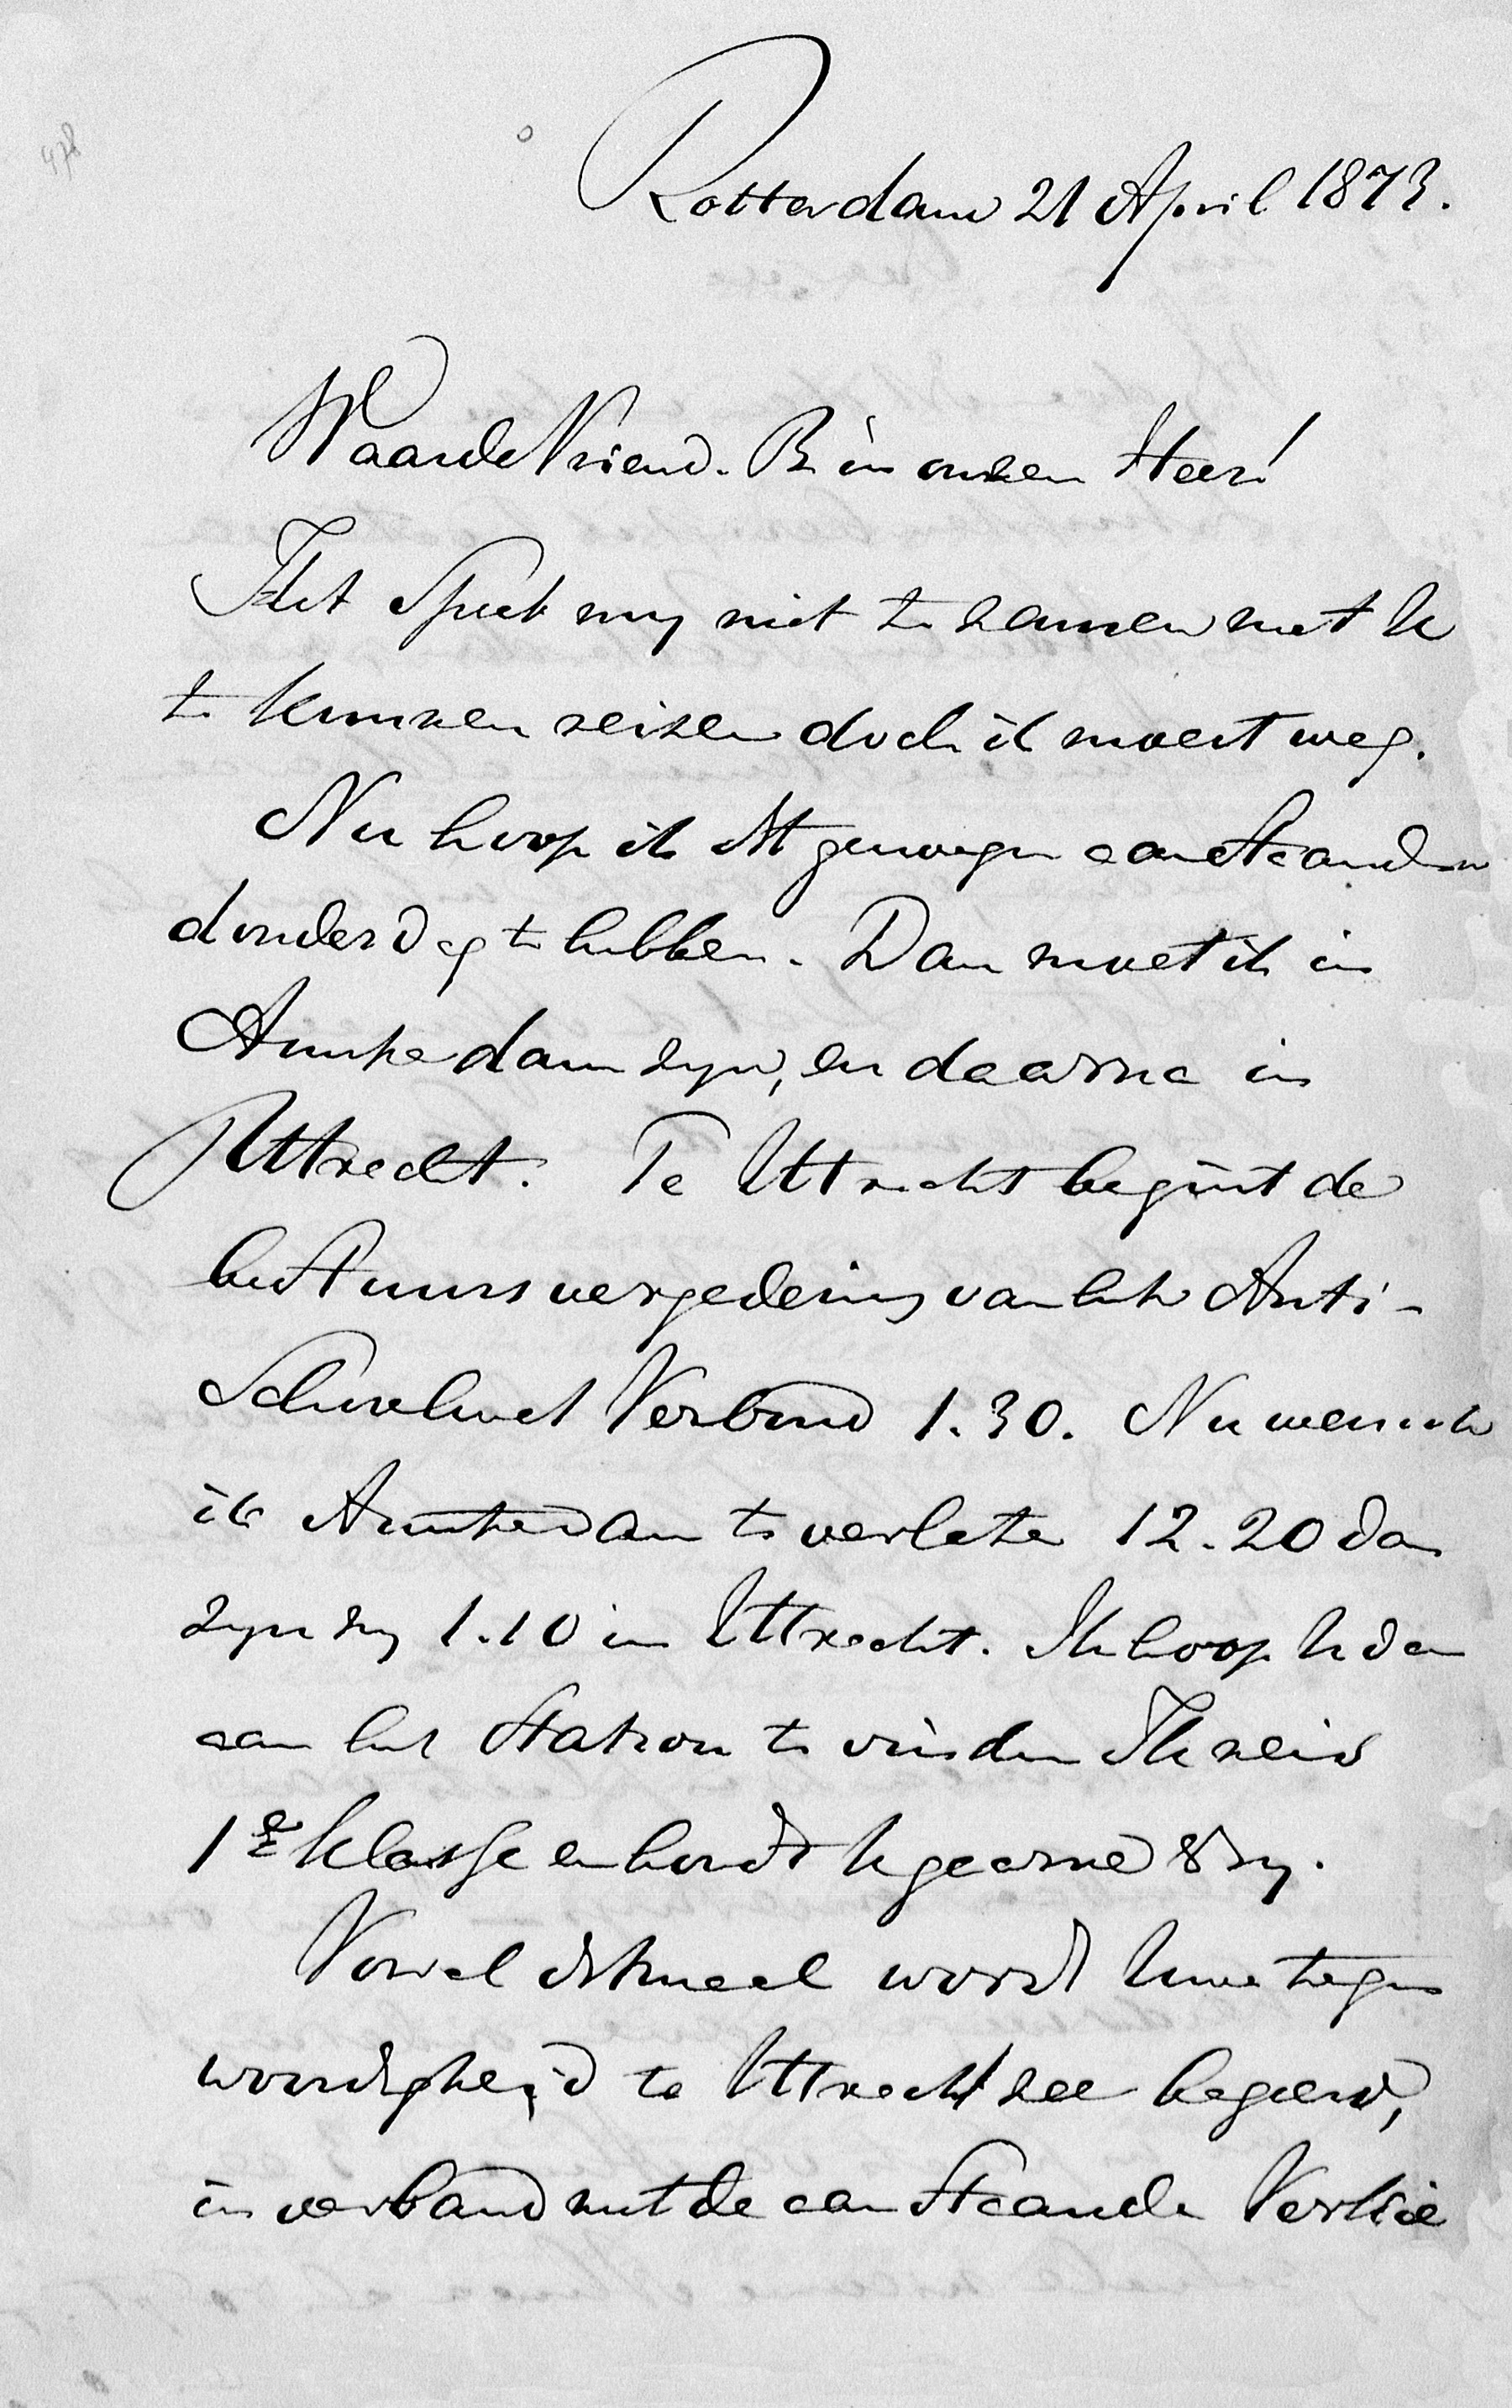 478
Rotterdam 21 April 1873.
Waarde Vriend. Br in onzen Heer!
Het speet my niet te zamen met U
te kunnen reizen doch ik moest weg.
Nu hoop ik dit genoegen aanstaanden
donderdag te hebben. Dan moet ik in
Amsterdam zyn, en daarna in
Uttrecht. Te Uttrecht begint de
bestuursvergadering van het Anti-
Schoolwet Verbond 1.30. Nu wensch
ik Amsterdam te verlaten 12.20 dan
zyn wy 1.10 in Uttrecht. Ik hoop U dan
aan het Station te vinden Ik reis
1e klasse en houdt U gaarne vry.
Vooral ditmaal wordt Uwe tegen
woordigheid te Uttrecht zee begeerd,
in verband met de aanstaande Verkie